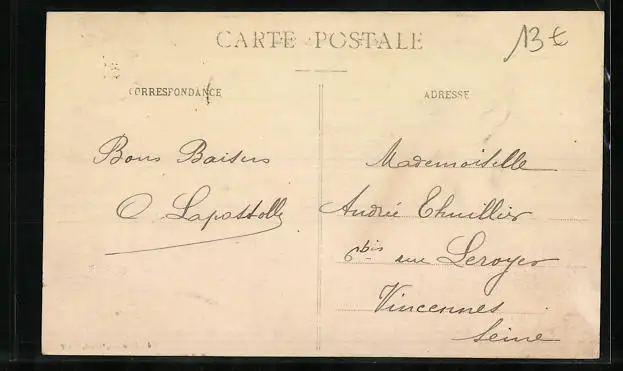 CARTE POSTALE
13€
CORRESPONDANCE
ADRESSE
Bons Baisers
O. Lapostolle
Mademoiselle
Andrée Thuillier
6 bis rue Leroyer
Vincennes
Seine